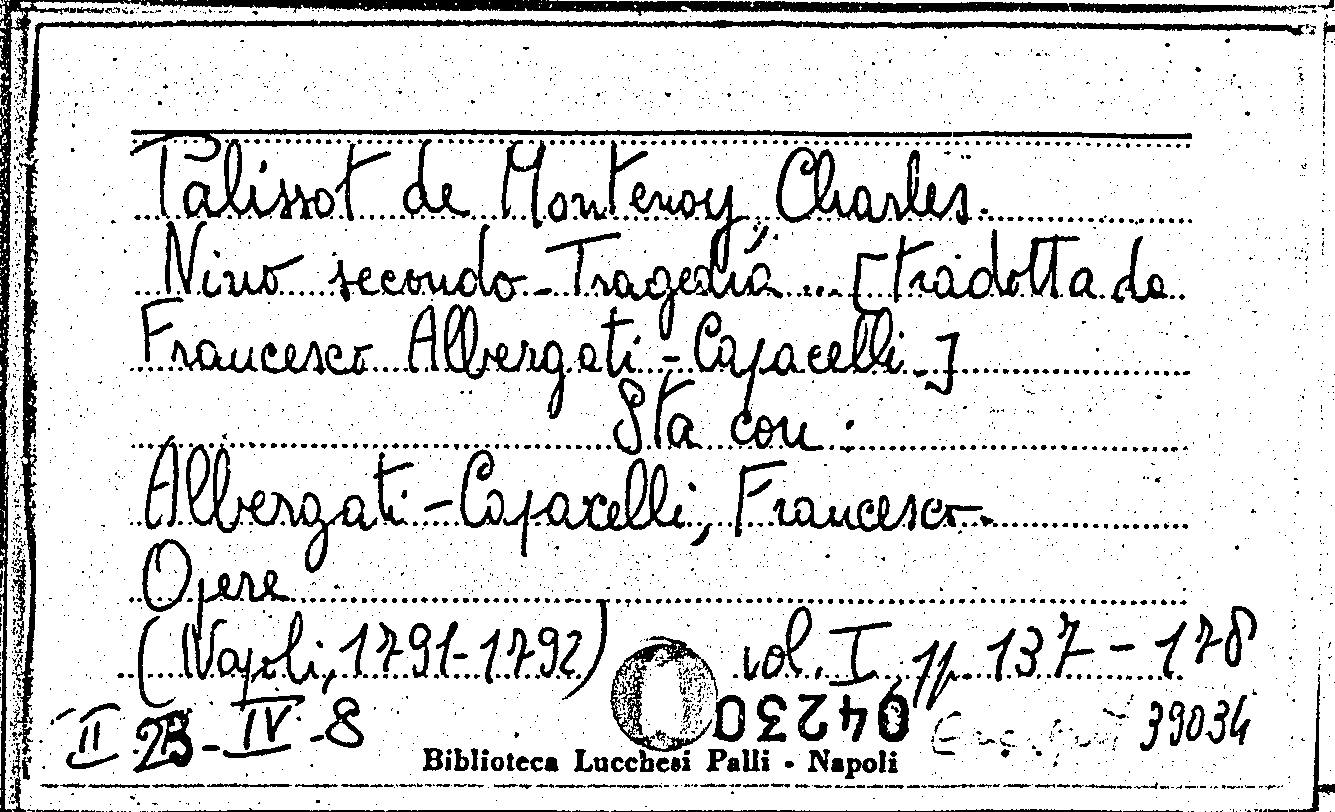 Palissot de Montenoy, Charles.
Nino secondo - Tragedia ... [tradotta da
Francesco Albergati-Capacelli.]
Sta con:
Albergati-Capacelli, Francesco.
Opere
(Napoli, 1791-1792) vol. I, pp. 137-178
II 2B-IV-8 04230 39034
Biblioteca Lucchesi Palli - Napoli